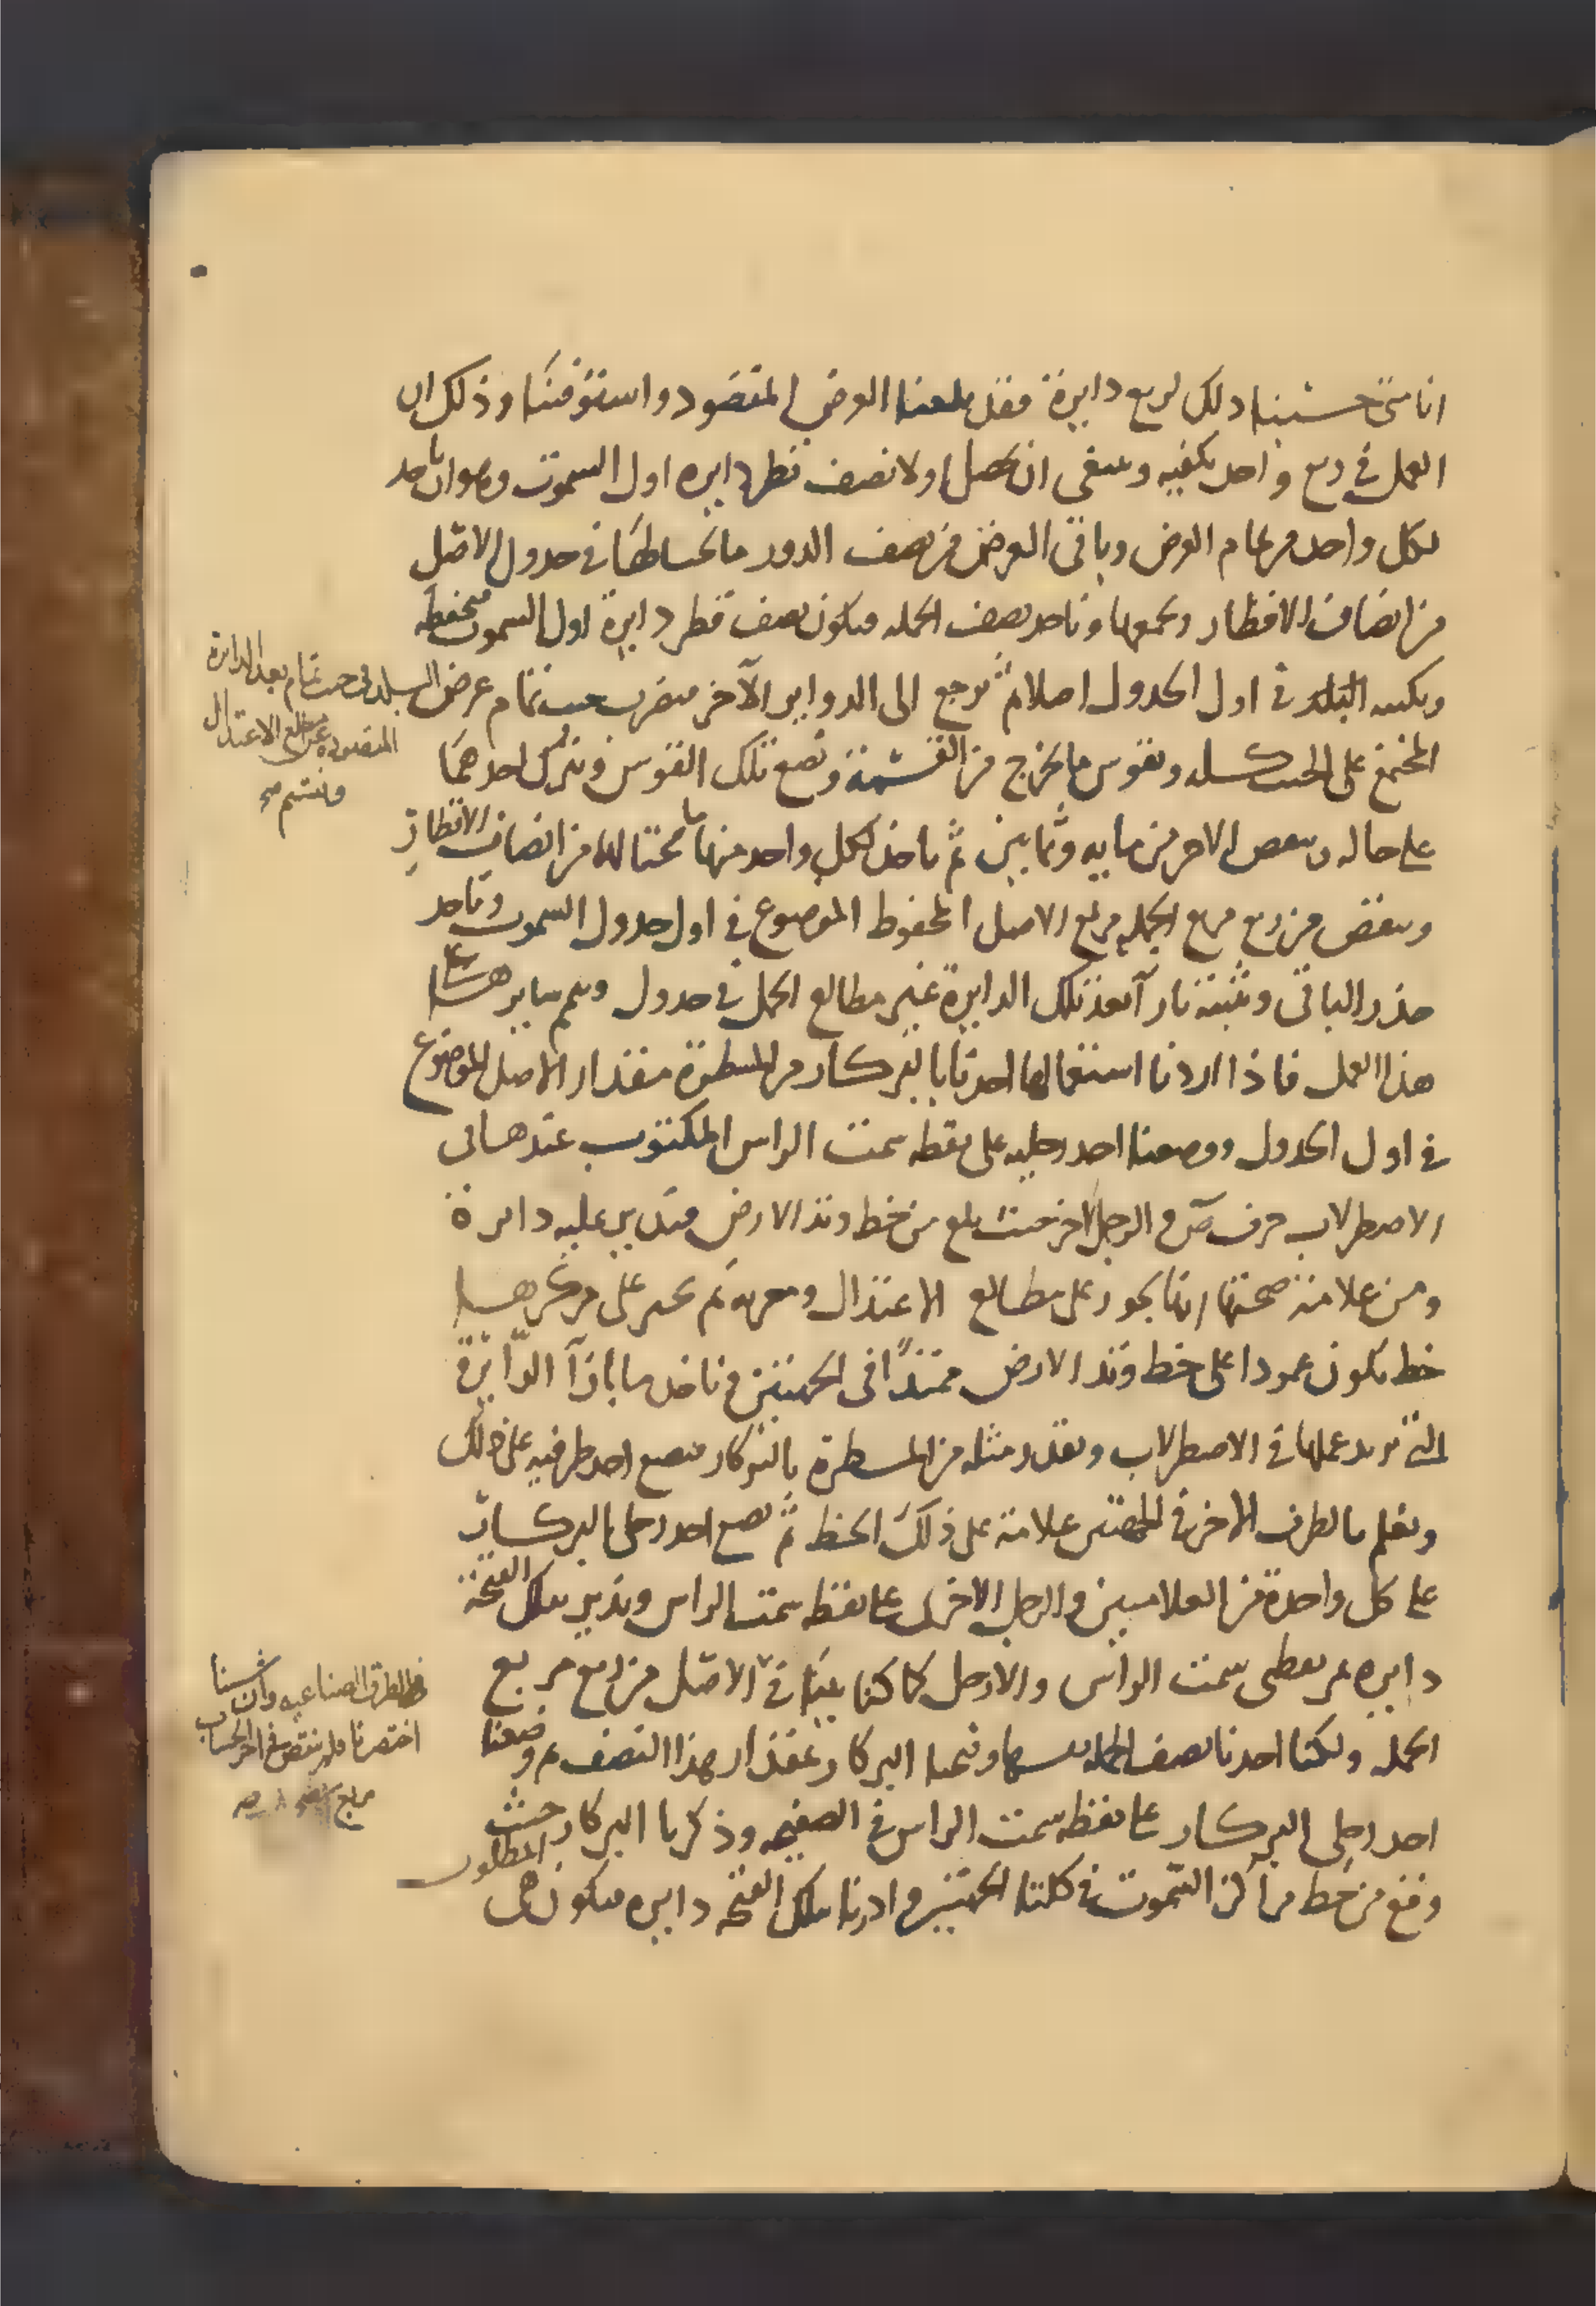 انا متى حسبنا ذلك لربع دايرة فقد بلغنا الغرض المقصود واستوفينا وذلك ان
العمل في ربع واحد يكفيه وينبغي ان نحصل اولا نصف قطر دايره اول السموت وهو ان ناخذ
لكل واحد من تمام العرض وباقي العرض من نصف الدور ما بحيالهما في جدول الاصل
من انصاف الاقطار ونجمعها وناخذ نصف الجمله فيكون نصف قطر دايرة اول السموت فنحفظه
ونكتبه في اول الجدول اصلا ثم نرجع الى الدواير الآخر فنضرب جيب تمام عرض البلد في جيب تمام بعد الدايرة
المقصوده عن مطالع الاعتدال
ونقسم صح
المجتمع على الجيب كله ونقوس ما يخرج من القسمة ونضع تلك القوس ونترك احدهما
على حاله وننقص الاخر من مايه وثمانين ثم ناخذ لكل واحد منهما ما بحياله من انصاف الاقطار
وننقص من ربع مربع الجمله مربع الاصل المحفوظ الموضوع في اول جدول السموت وناخذ
جذر الباقي ونثبته بازآ بعد تلك الدايرة عن مطالع الحمل في جدول ونتمم سايرها على
هذا العمل فاذا اردنا استعمالها اخذنا بالبركار من المسطرة مقدار الاصل الموضوع
في اول الجدول ووضعنا احد رجليه على نقطه سمت الراس المكتوب عندها في
الاصطرلاب حرف ص والرجل الاخر حيث بلغ من خط وتد الارض فندير عليه دايرة
ومن علامة صحتها انها تجوز على مطالع الاعتدال ومغربه ثم نجيز على مركزها
خط يكون عمودا على خط وتد الارض ممتدًا في الجهتين وناخذ ما بازآ الدّايرة
التي نريد عملها في الاصطرلاب ونقدر مثله من المسطرة بالبركار فنضع احد طرفيه على ذلك
ونعلم بالطرف الاخر في الجهتين علامة على ذلك الخط ثم نضع احد رجلي البركار
على كل واحدة من العلامتين والرجل الاخرى على نقطه سمت الراس وندير بتلك الفتحة
دايره تمر بنقطتي سمت الراس والارجل كما كنا عينا في الاصل من ربع مربع
الجمله ولكنا اخذنا نصف الجمله نفسها وفتحنا البركار بمقدار هذا النصف ثم وضعنا
احد رجلي البركار على نقطه سمت الراس في الصفيحه وذكرنا البركار حيث
وقع من خط مراكز السّموت في كلتا الجهتين وادرنا بتلك الفتحه دايره فيكون هي المطلوب
بالطرق الصناعيه وان شينا
اختصرنا ولم ننقص في اخر الحساب
مربع